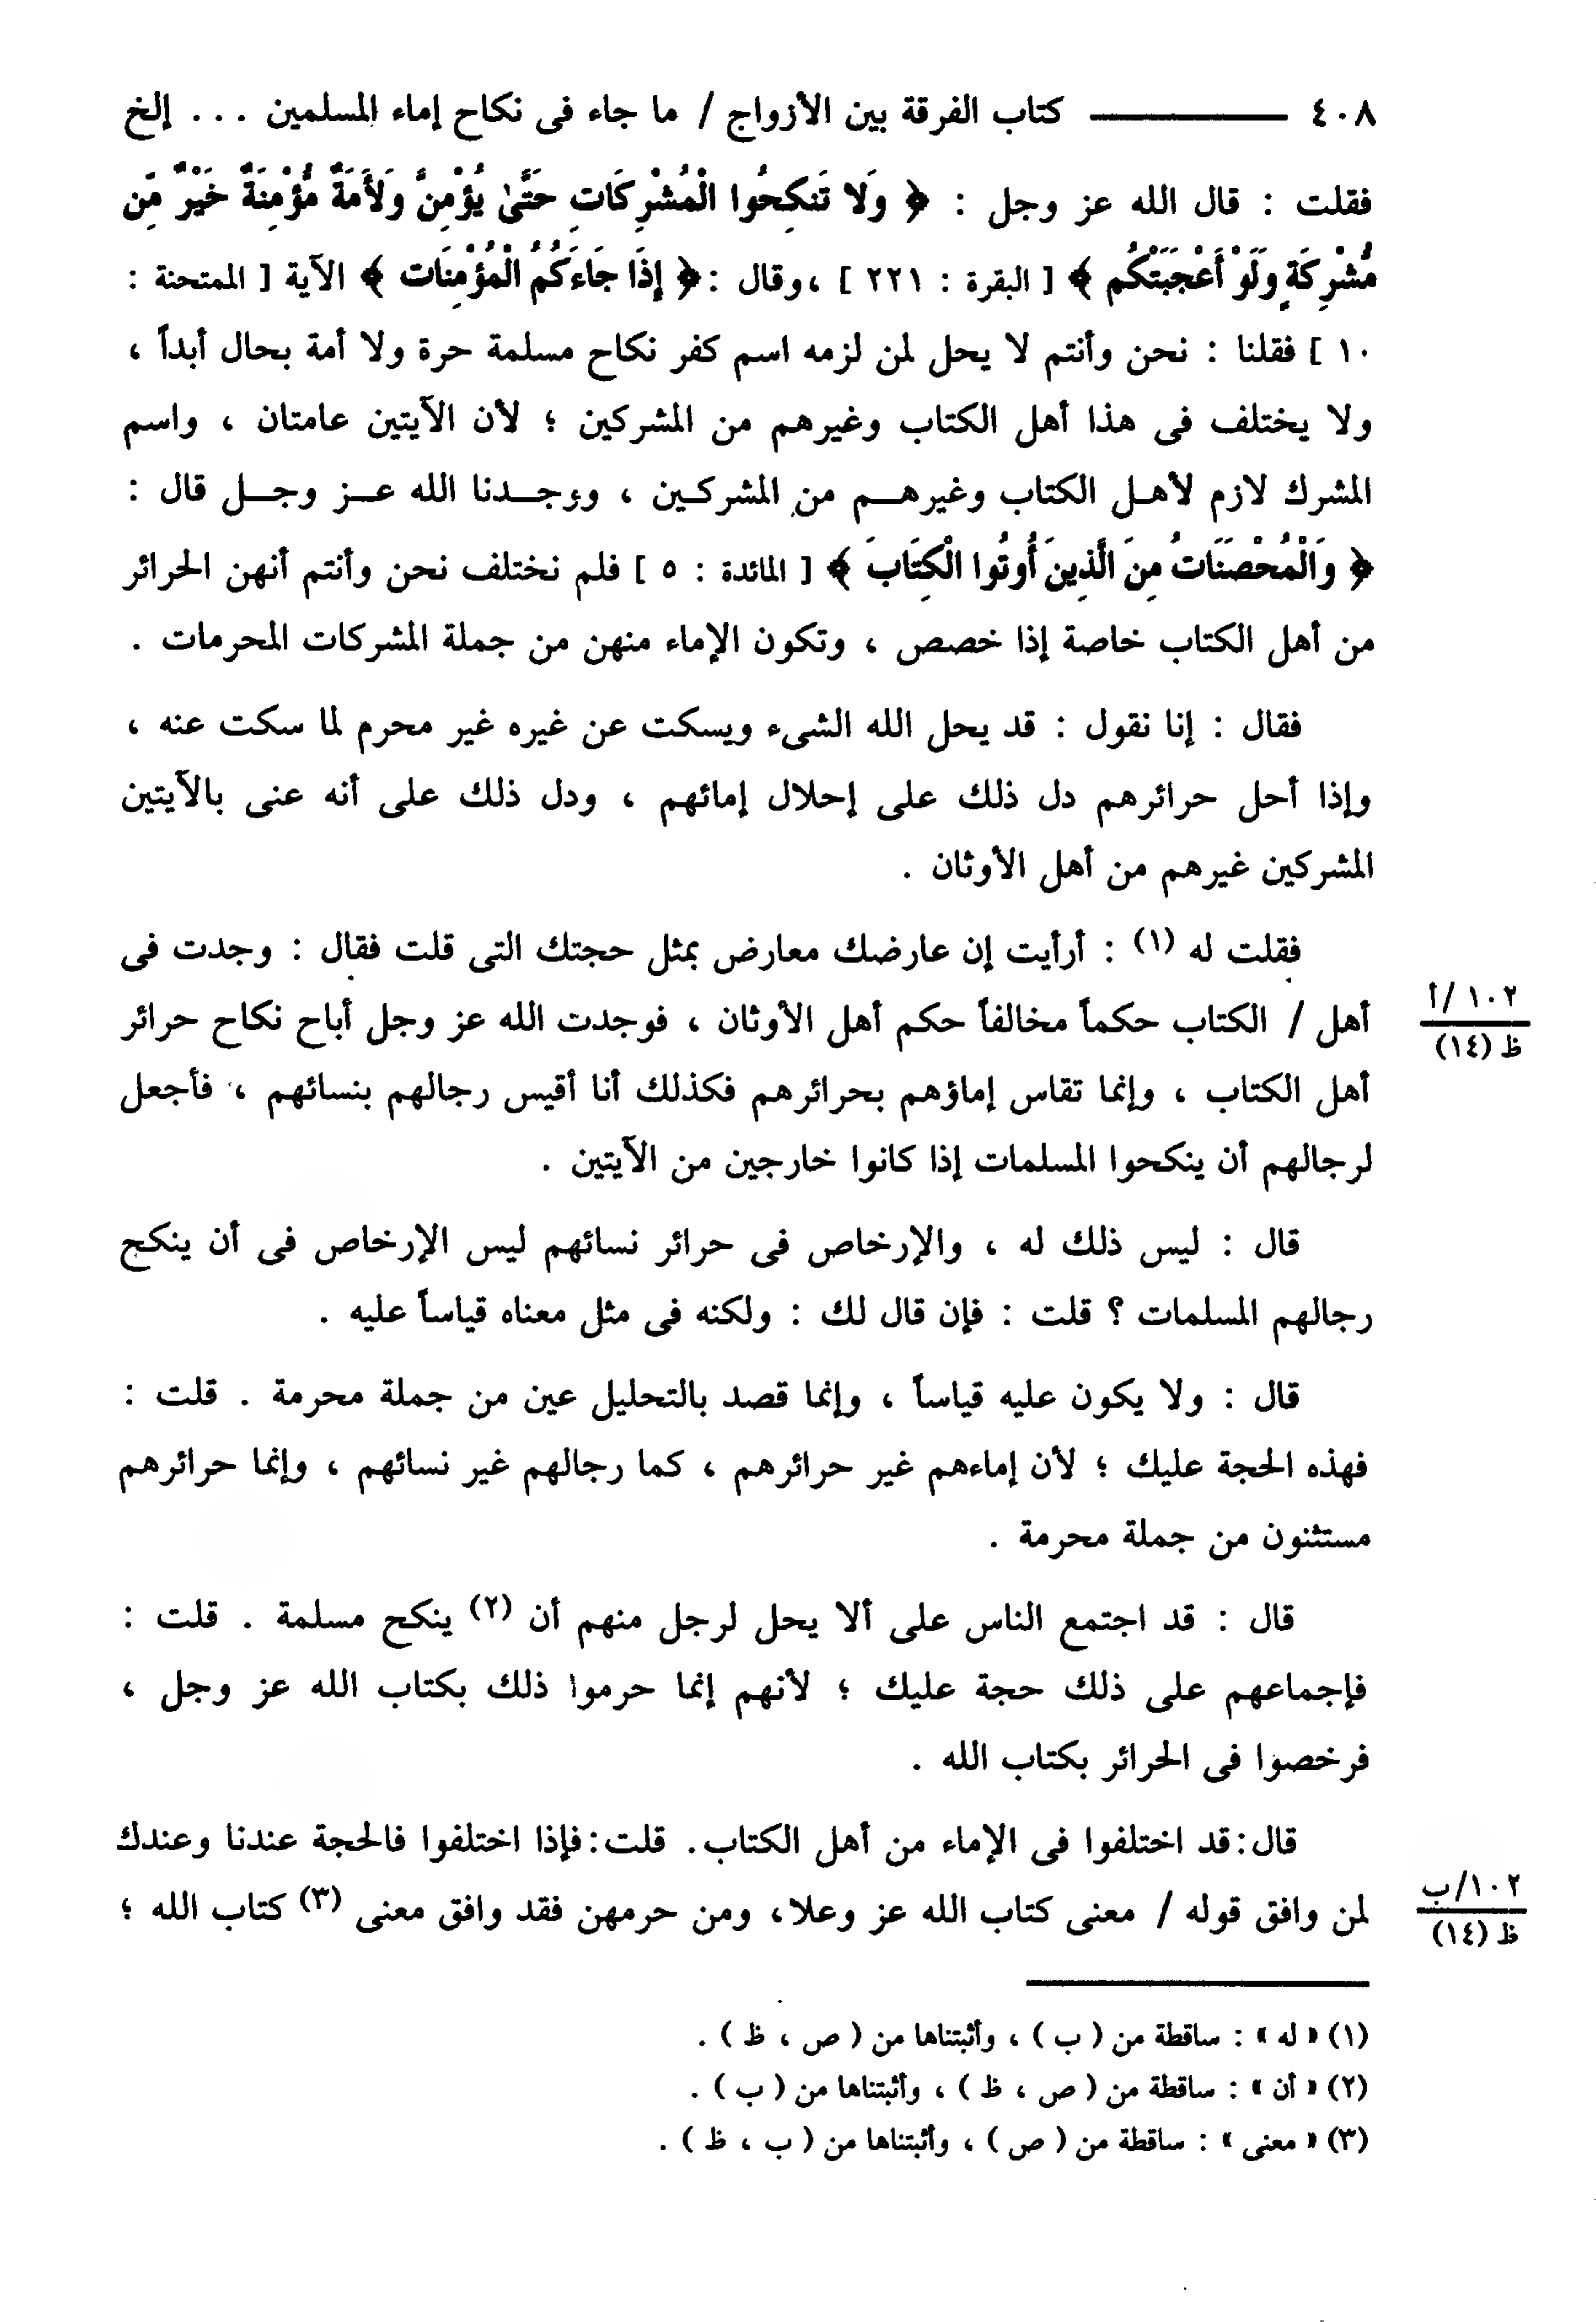 ٤٠٨ ——— كتاب الفرقة بين الأزواج / ما جاء فى نكاح إماء المسلمين . . . إلخ
فقلت : قال الله عز وجل : ﴿ وَلا تَنكِحُوا الْمُشْرِكَاتِ حَتَّىٰ يُؤْمِنَّ وَلَأَمَةٌ مُّؤْمِنَةٌ خَيْرٌ مِّن
مُّشْرِكَةٍ وَلَوْ أَعْجَبَتْكُم ﴾ [ البقرة : ٢٢١ ] ، وقال : ﴿ إِذَا جَاءَكُمُ الْمُؤْمِنَات ﴾ الآية [ الممتحنة :
١٠ ] فقلنا : نحن وأنتم لا يحل لمن لزمه اسم كفر نكاح مسلمة حرة ولا أمة بحال أبداً ،
ولا يختلف فى هذا أهل الكتاب وغيرهم من المشركين ؛ لأن الآيتين عامتان ، واسم
المشرك لازم لأهل الكتاب وغيرهم من المشركين ، ووجدنا الله عز وجل قال :
﴿ وَالْمُحْصَنَاتُ مِنَ الَّذِينَ أُوتُوا الْكِتَابَ ﴾ [ المائدة : ٥ ] فلم نختلف نحن وأنتم أنهن الحرائر
من أهل الكتاب خاصة إذا خصص ، وتكون الإماء منهن من جملة المشركات المحرمات .
فقال : إنا نقول : قد يحل الله الشىء ويسكت عن غيره غير محرم لما سكت عنه ،
وإذا أحل حرائرهم دل ذلك على إحلال إمائهم ، ودل ذلك على أنه عنى بالآيتين
المشركين غيرهم من أهل الأوثان .
فقلت له (١) : أرأيت إن عارضك معارض بمثل حجتك التى قلت فقال : وجدت فى
أهل / الكتاب حكماً مخالفاً حكم أهل الأوثان ، فوجدت الله عز وجل أباح نكاح حرائر
١٠٢/أ
ظ (١٤)
أهل الكتاب ، وإنما تقاس إماؤهم بحرائرهم فكذلك أنا أقيس رجالهم بنسائهم ، فأجعل
لرجالهم أن ينكحوا المسلمات إذا كانوا خارجين من الآيتين .
قال : ليس ذلك له ، والإرخاص فى حرائر نسائهم ليس الإرخاص فى أن ينكح
رجالهم المسلمات ؟ قلت : فإن قال لك : ولكنه فى مثل معناه قياساً عليه .
قال : ولا يكون عليه قياساً ، وإنما قصد بالتحليل عين من جملة محرمة . قلت :
فهذه الحجة عليك ؛ لأن إماءهم غير حرائرهم ، كما رجالهم غير نسائهم ، وإنما حرائرهم
مستثنون من جملة محرمة .
قال : قد اجتمع الناس على ألا يحل لرجل منهم أن (٢) ينكح مسلمة . قلت :
فإجماعهم على ذلك حجة عليك ؛ لأنهم إنما حرموا ذلك بكتاب الله عز وجل ،
فرخصوا فى الحرائر بكتاب الله .
قال : قد اختلفوا فى الإماء من أهل الكتاب . قلت : فإذا اختلفوا فالحجة عندنا وعندك
لمن وافق قوله / معنى كتاب الله عز وعلا ، ومن حرمهن فقد وافق معنى (٣) كتاب الله ؛
١٠٢/ب
ظ (١٤)
(١) « له » : ساقطة من ( ب ) ، وأثبتناها من ( ص ، ظ ) .
(٢) « أن » : ساقطة من ( ص ، ظ ) ، وأثبتناها من ( ب ) .
(٣) « معنى » : ساقطة من ( ص ) ، وأثبتناها من ( ب ، ظ ) .